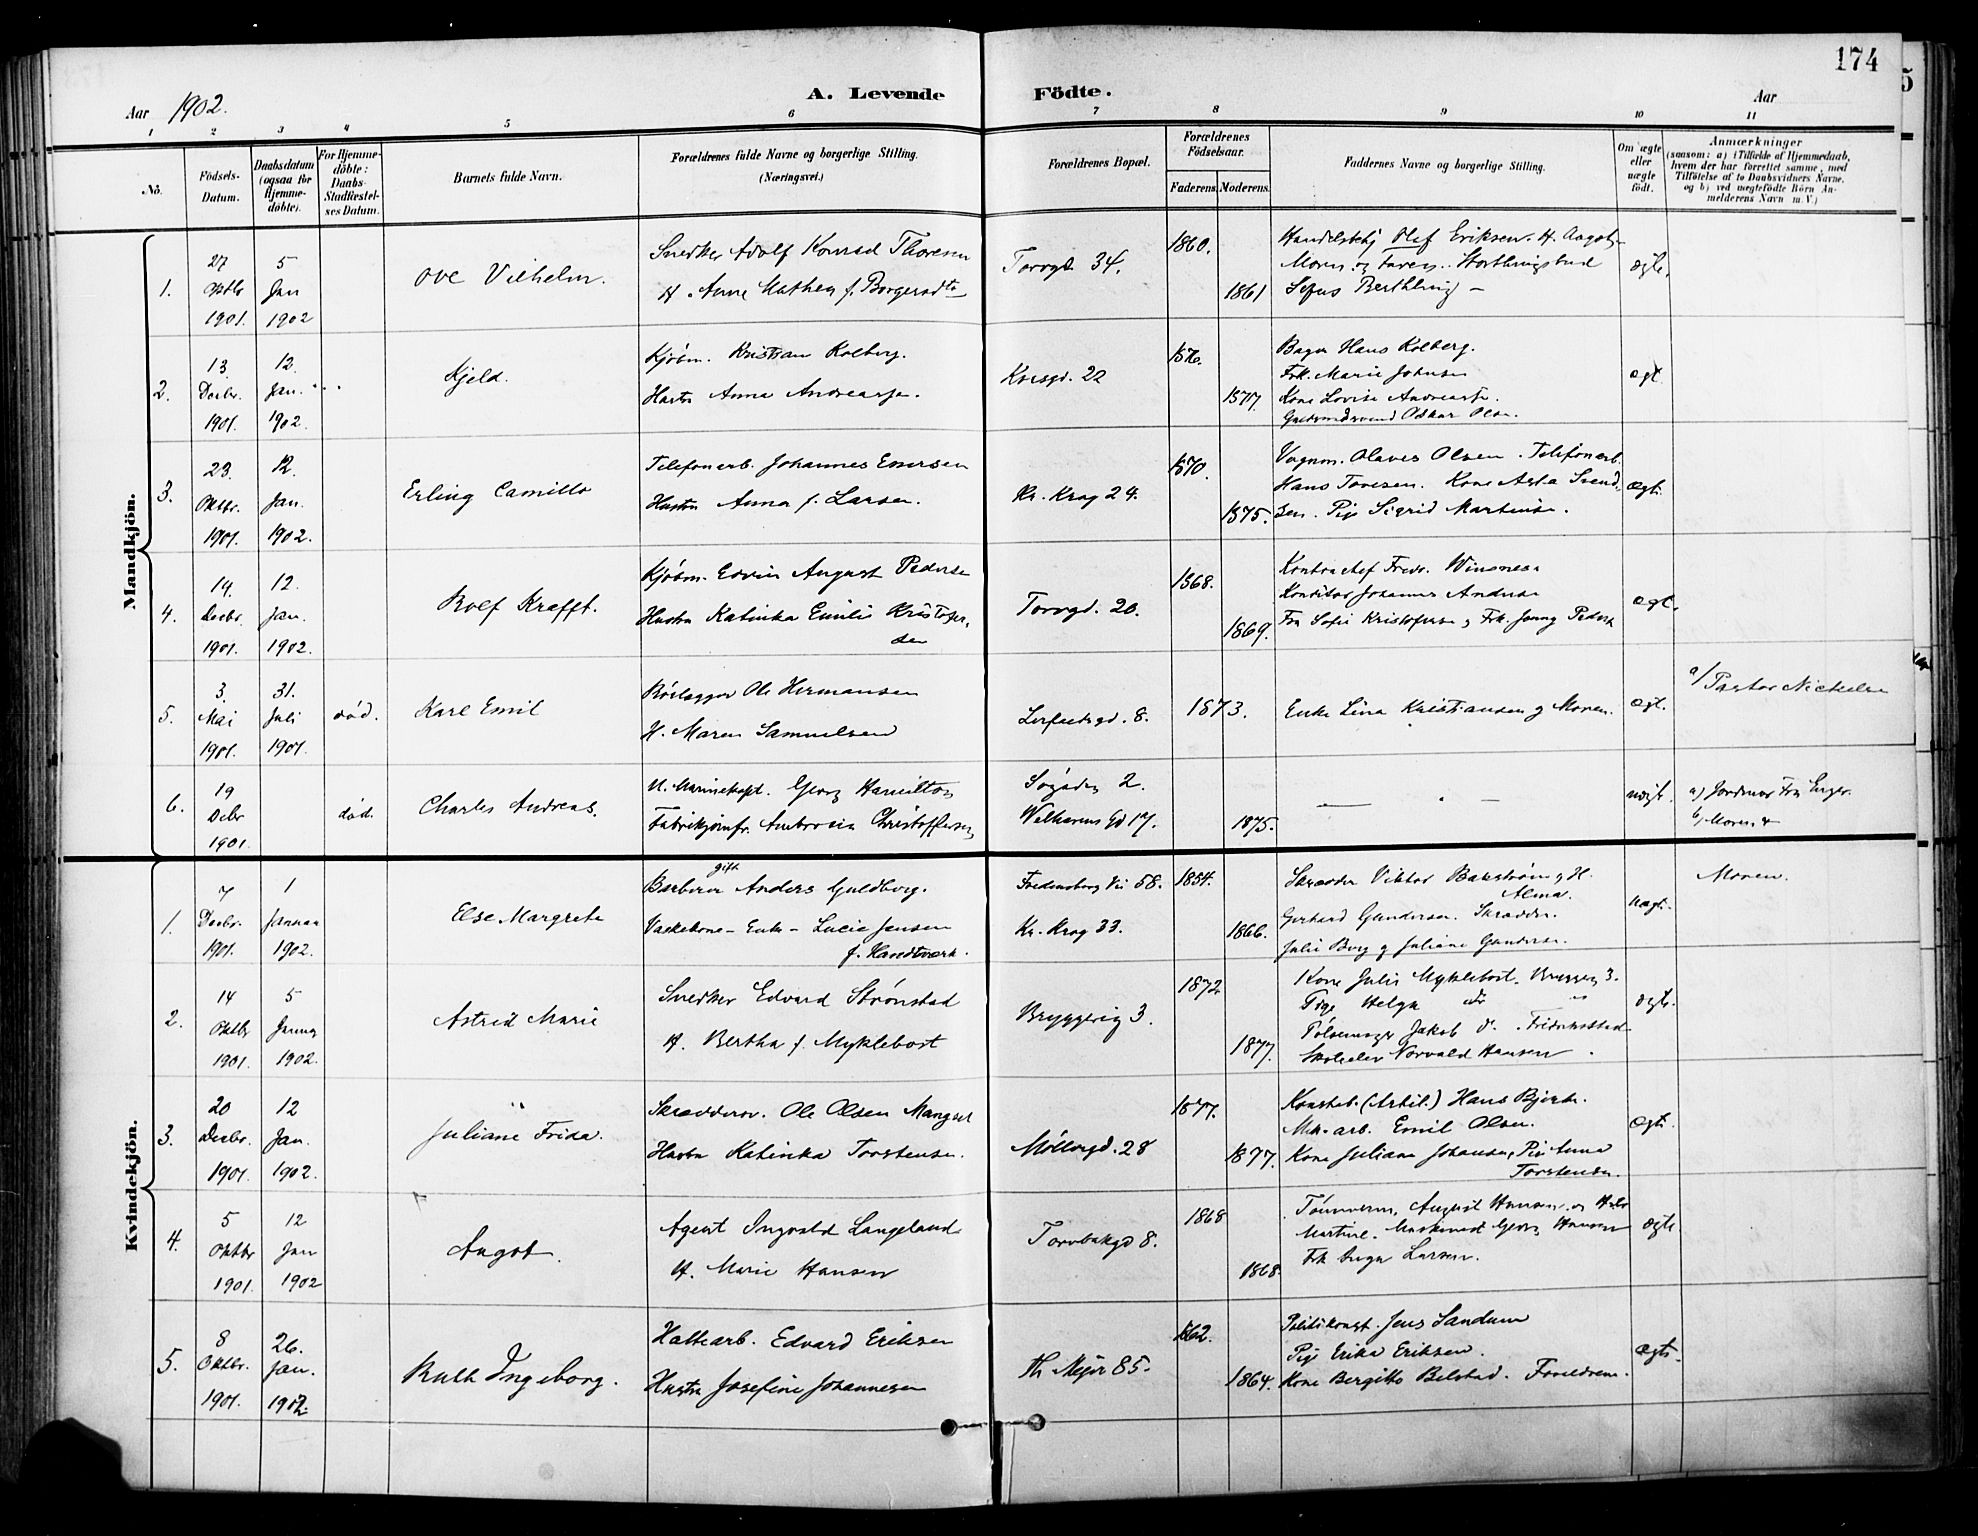 174
5
Aar 1902.
A. Levende Födte.
Aar
1 2 3 4 5 6 7 8 9 10 11
No.
Födsels-
Datum.
Daabsdatum
(ogsaa for
Hjemme-
döbte).
For Hjemme-
döbte:
Daabs-
Stadfæstel-
ses Datum.
Barnets fulde Navn.
Forældrenes fulde Navne og borgerlige Stilling.
(Næringsvei.)
Forældrenes Bopæl.
Forældrenes
Födselsaar.
Faderens.
Moderens.
Faddernes Navne og borgerlige Stilling.
Om ægte
eller
uægte
födt.
Anmærkninger
(saasom: a) i Tilfælde af Hjemmedaab,
hvem der har forrettet samme, med
Tilföielse af to Daabsvidners Navne,
og b) ved uegtefödte Börn An-
melderens Navn m. V.)
Mandkjön.
1.
27
Oktbr
1901.
5
Jan
1902
Ove Vilhelm.
Snedker Adolf Konrad Thoresen
H. Anne Mathea f. Borgersd
Torvgd. 34.
1860.
1861
Olaf Eriksen. H. Aagot
Moren og faren. Storthingsbud
Berthling
ægte.
2.
13
Decbr.
1901.
12.
Jan.
1902.
Kjeld.
Kjøbm. Kristian Kolberg.
Hustru Anna Andreassen.
Korsgd. 22
1876.
1877.
Bager Hans Kolberg.
Frk. Marie Johnsen
Kone Lovise Andreassen.
Guldsmedsvend Oskar Olsen.
ægt.
3.
23.
Oktbr.
1901.
12.
Jan.
1902.
Erling Camillo
Telefonarb. Johannes Enersen
Hustru Anna f. Larsen.
Kr. Krog 24.
1870.
1875.
Vognm. Olaves Olsen. Telefonarb.
Hans Toresen. Kone Asta Svend-
sen. Pige Sigrid Martinsen.
ægte.
4.
14.
Decbr.
1901.
12.
Jan.
1902.
Rolf Krafft.
Kjøbm. Edvin August Pedersen
Hustru Katinka Emilie Kristofer-
sen
Torvgd. 20.
1868.
1869.
Kontorchef Fredr. Winsnes
Konditor Johannes Andersen
Fru Sofie Kristofersen, Frk. Jenny Pedersen
ægt.
5.
3.
Mai
1901.
31.
Juli
1901.
død.
Karl Emil
Rørlægger Ole Hermansen
H. Maren Samuelsen
Lerfaldsgd. 8.
1873.
Enke Lina Kristiansen og Moren.
ægt.
a/ Pastor Nichelsen
6.
19
Decbr
1901.
død.
Charles Andreas.
U. Marinekapt. Georg Hamilton
Fabrikjomfr. Ambrosia Christoffersen
Søgaden 2.
Welhavens Gd 17.
1875.
— " —
uægt.
a) Jordmor Fru Unger.
b/ Moren
Kvindekjön.
1.
7
Decbr.
1901.
1
Januar
1902.
Else Margrete
gift
Barberer Anders Guldborg.
Vaskekone - Enke - Lucie Jensen
f. Handtverk.
Fredensborg Vei 58.
Kr. Krog 33.
1854.
1866.
Skrædder Viktor Bakstrøm og H.
Alma.
Gerhard Gundersen. Skrædder.
Julie Berg og Juliane Gundersen.
uægt.
Moren.
2.
14
Oktbr
1901.
5
Januar
1902.
Astrid Marie
Snedker Edvard Strønstad
H. Bertha f. Myklebost
Bryggerig 3.
1872
1877.
Kone Julie Myklebost. Bryggerg 3.
Pige Helga do "
Pølsemager Jakob d. Fredrikstad
Skoleelev Norvald Hansen.
ægte.
3.
20
Decbr.
1901.
12
Jan.
1902.
Juliane Frida.
Skræddersv. Ole Olsen Mangset
Hustru Katinka Torstensen.
Møllergd. 28
1877.
1877.
Konstab. (Artil.) Hans Bjerke.
Mek. arb. Emil Olsen.
Kone Juliane Johansen, Pige Anna
Torstensen.
Ægte.
4.
5
Oktbr
1901.
12
Jan
1902
Aagot.
Agent Ingvald Langeland
H. Marie Hansen
Torvbakgd 8.
1868
1868.
Tømmerm. August Hansen og H
Martine. Maskinist Georg Hansen
Frk Inga Larsen.
ægte
5.
8
Oktbr.
1901.
26.
Jan.
1902.
Ruth Ingeborg.
Hattearb. Edvard Eriksen
Hustru Josefine Johannesen
Th Mejer 85.
1862.
1864.
Politikonst. Jens Sandum
Pige Erika Eriksen.
Kone Bergitte Belstad. Forældrene.
Ægte.